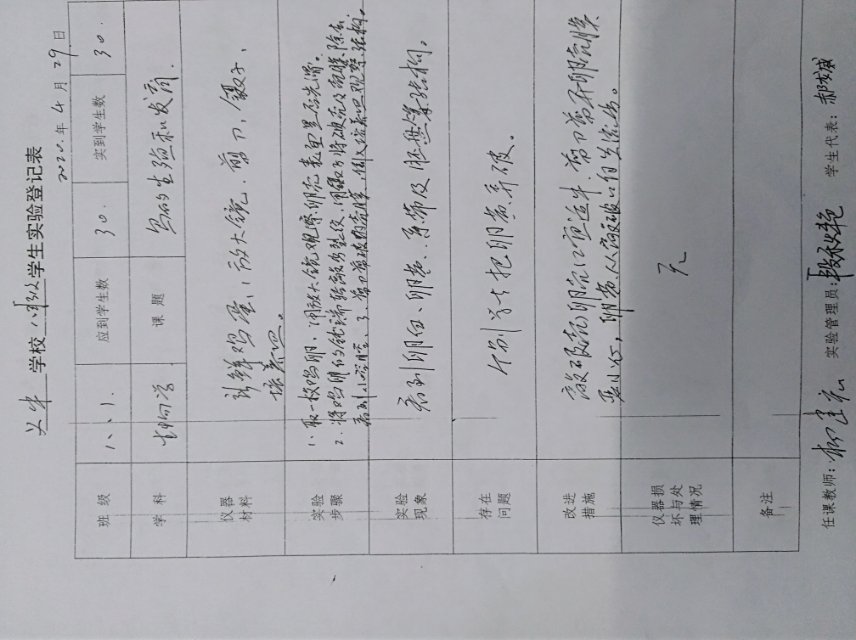 学校 八年级 学生实验登记表
2020年 4月 29日
班级 八、1. 应到学生数 30. 实到学生数 30.
学科 生物学 课题 鸟的生殖和发育.
仪器材料 新鲜鸡蛋, 放大镜, 剪刀, 镊子,
培养皿.
实验步骤 1. 取一枚鸡卵、用放大镜观察卵壳表面是否光滑。
2. 将鸡卵的钝端轻敲出裂纹、用镊子将破壳及壳膜除去、
看到小气室 3. 剪刀剪破内壳膜、倒入培养皿观察结构。
实验现象 看到卵白、卵黄、系带及胚盘等结构。
存在问题 个别学生把卵黄弄破。
改进措施 敲破壳卵壳口应适中, 剪刀剪开卵壳膜
要小心, 卵黄 从敲破口自然流出。
仪器损坏与处理情况 无
备注
任课教师: 实验管理员: 学生代表: